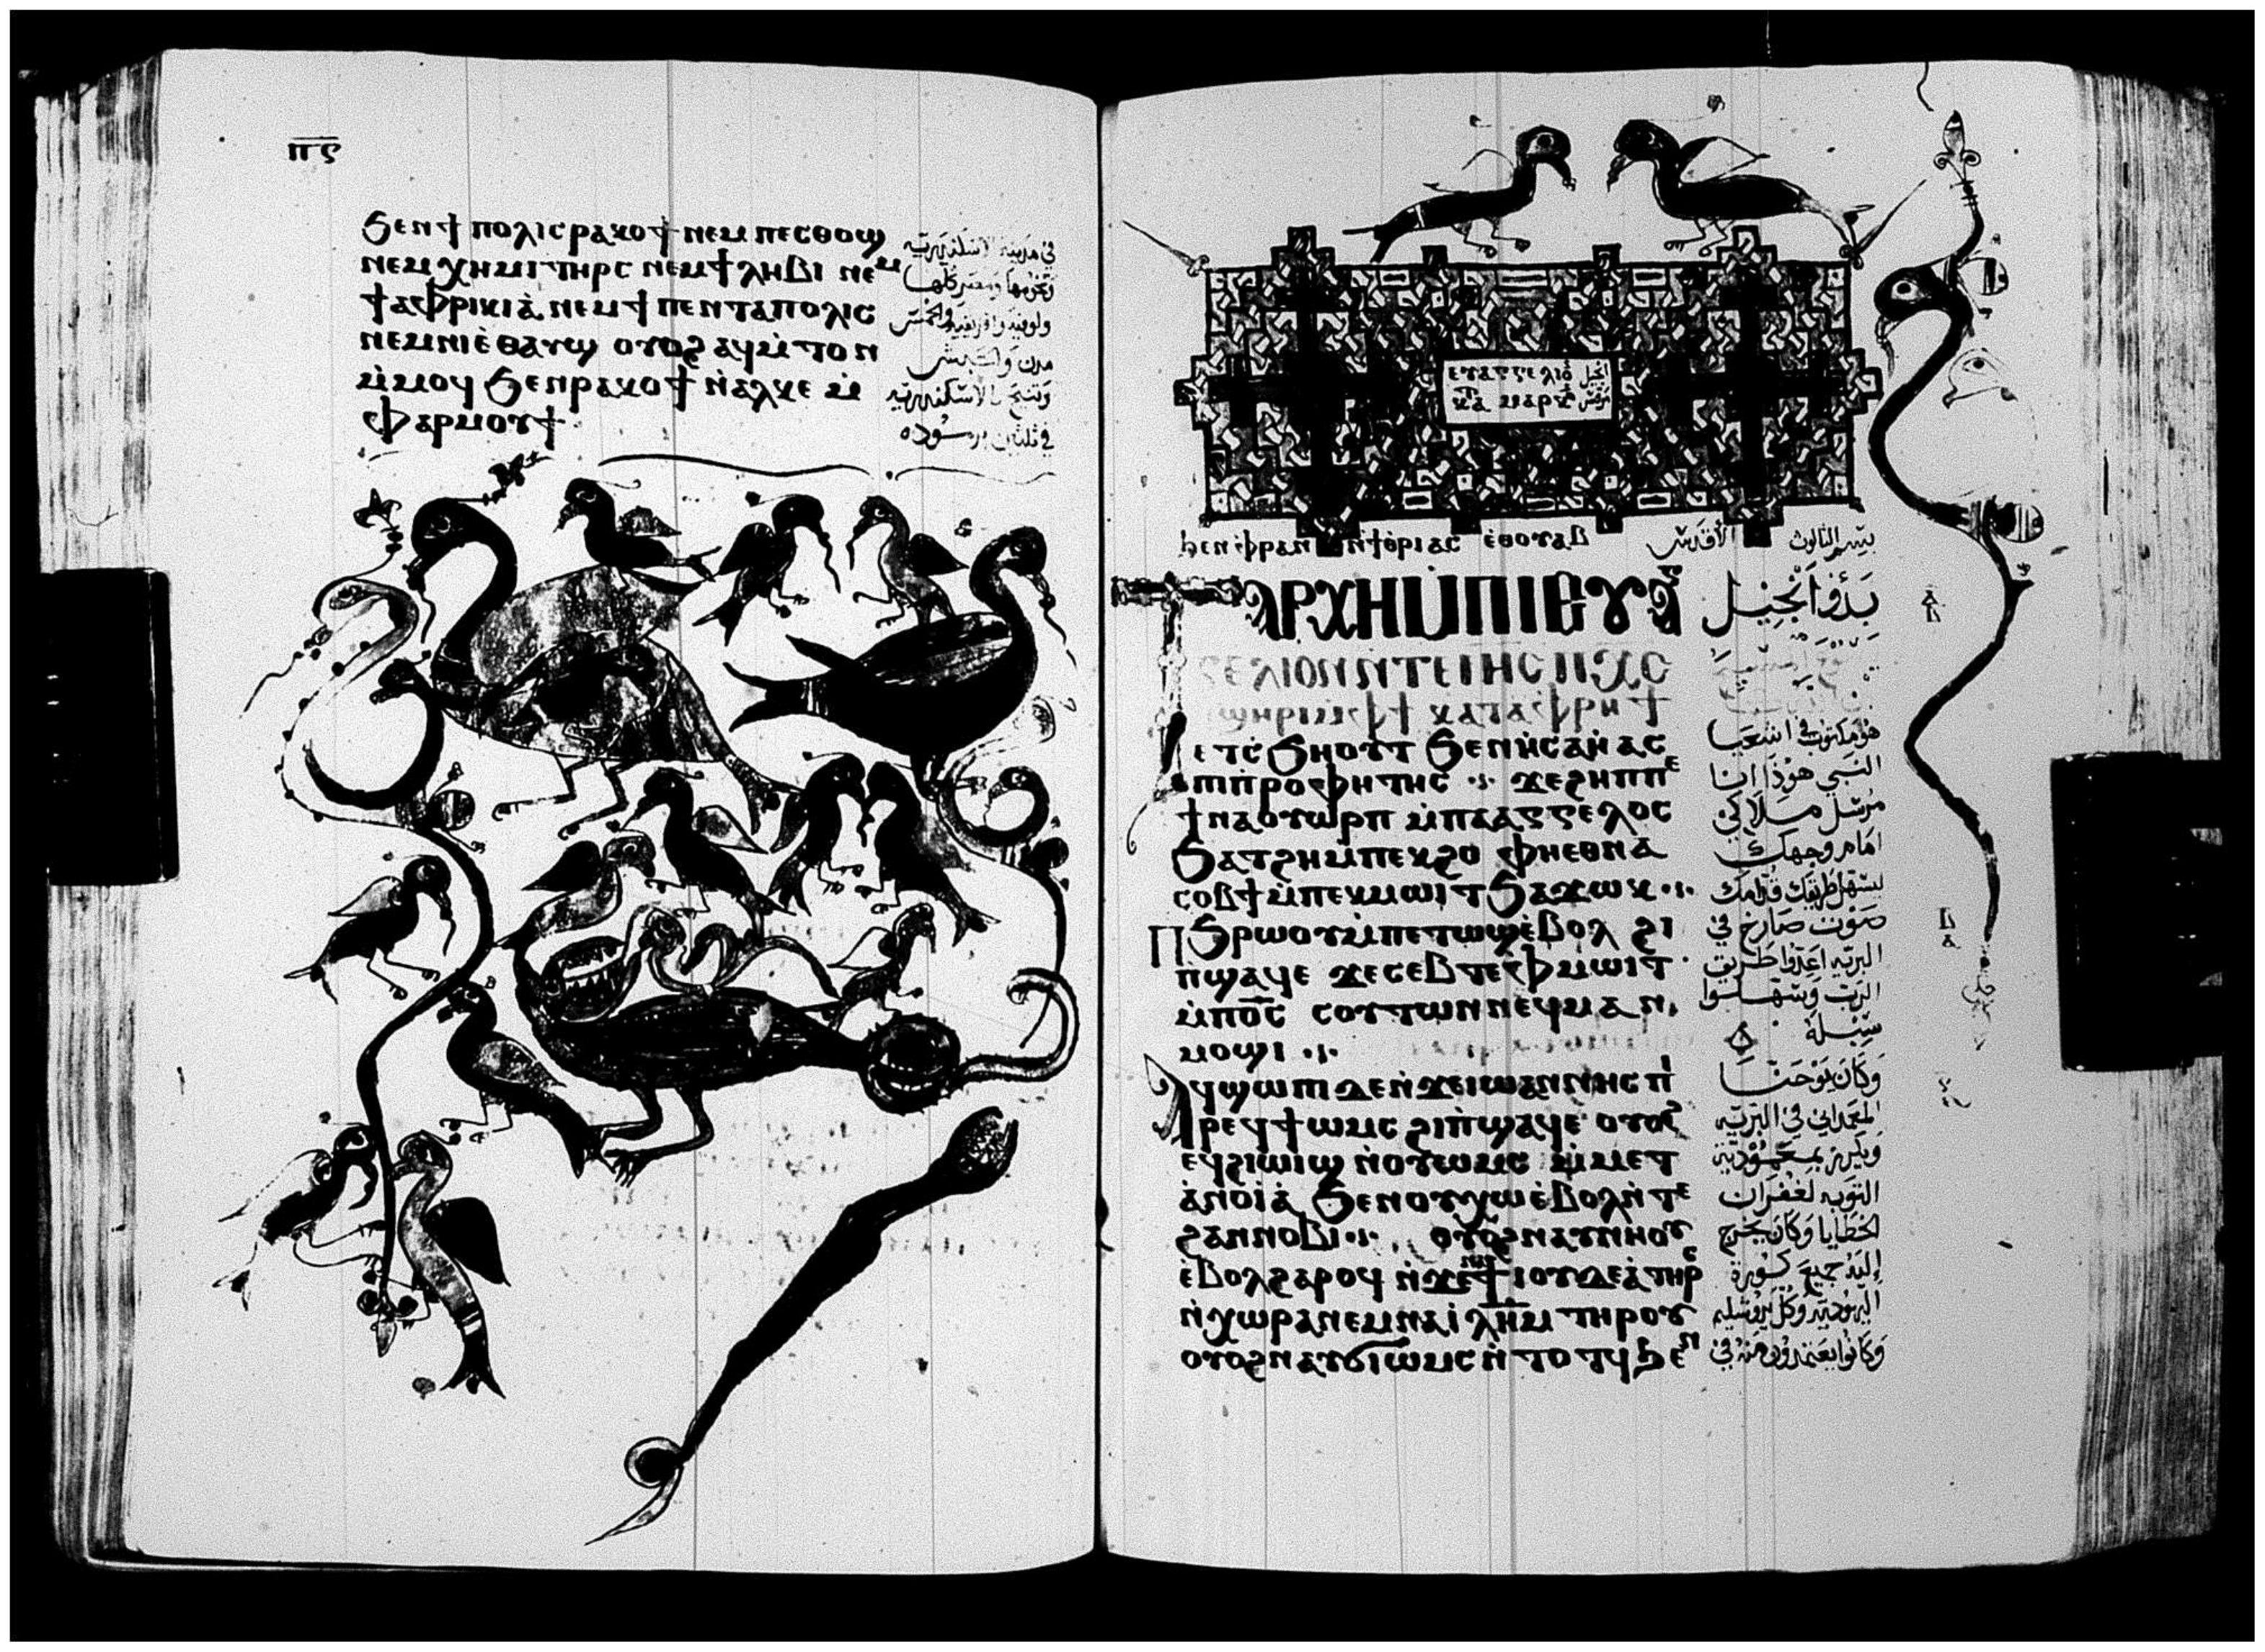 ⲡⲋ
ϧⲉⲛϯ ⲡⲟⲗⲓⲥ ⲣⲁⲕⲟϯ ⲛⲉⲙ ⲡⲉⲥⲑⲟϣ
ⲛⲉⲙ ⲭⲏⲙⲓ ⲧⲏⲣⲥ ⲛⲉⲙ ϯ ⲗⲏⲃⲓ ⲛⲉⲙ
ϯⲁⲫⲣⲓⲕⲓⲁ̀ ⲛⲉⲙ ϯ ⲡⲉⲛⲧⲁⲡⲟⲗⲓⲥ
ⲛⲉⲙ ⲛⲓⲉ̀ⲑⲁⲩϣ ⲟⲩⲟϩ ⲁϥⲙ̀ⲧⲟⲛ
ⲙ̀ⲙⲟϥ ϧⲉⲛ ⲣⲁⲕⲟϯ ⲛ̀ⲁⲗⲕⲉ ⲙ̀
ⲫⲁⲣⲙⲟⲩϯ
في مدينة الاسكندرية
وتخومها ومصر كلها
ولوبية وافريقية والخمس
مدن
وتنيح بالاسكندرية
في ثلثين برموده
ⲉⲩⲁⲅⲅⲉⲗⲓⲟ̄ انجيل
ⲕⲁ̄ⲧ ⲙⲁⲣⲕ̄ مرقس
ϧⲉⲛ ⲫⲣⲁⲛ ⲛ̀ϯⲑ̀ⲣⲓⲁⲥ ⲉ̀ⲑⲟⲩⲁⲃ بسم الثالوث الاقدس
ⲧⲁⲣⲭⲏ ⲙ̀ⲡⲓⲉⲩⲁⲅ
ⲅⲉⲗⲓⲟⲛ ⲛ̀ⲧⲉ ⲓⲏⲥ ⲡⲭⲥ
ⲡϣⲏⲣⲓ ⲙ̀ⲫϯ ⲕⲁⲧⲁⲫⲣⲏϯ
ⲉⲧⲥ̀ϧⲏⲟⲩⲧ ϧⲉⲛ ⲏ̀ⲥⲁⲏ̀ⲁⲥ
ⲡⲓⲡ̀ⲣⲟⲫⲏⲧⲏⲥ ϫⲉ ϩⲏⲡⲡⲉ
ϯⲛⲁⲟⲩⲱⲣⲡ ⲙ̀ⲡⲁⲁⲅⲅⲉⲗⲟⲥ
ϧⲁⲧϩⲏ ⲙ̀ⲡⲉⲕϩⲟ ⲫⲏⲉⲑⲛⲁ
ⲥⲟⲃϯ ⲙ̀ⲡⲉⲕⲙⲱⲓⲧ ϧⲁϫⲱⲕ
ⲡϧⲣⲱⲟⲩ ⲙ̀ⲡⲉⲧⲱϣ ⲉ̀ⲃⲟⲗ ϩⲓ
ⲡϣⲁϥⲉ ϫⲉ ⲥⲉⲃⲧⲉ ⲫⲙⲱⲓⲧ
ⲙ̀ⲡⲟ̄ⲥ̄ ⲥⲟⲩⲧⲱⲛ ⲛⲉϥⲙⲁⲛ
ⲙⲟϣⲓ
ⲁϥϣⲱⲡⲓ ⲇⲉ ⲛ̀ϫⲉ ⲓⲱⲁⲛⲛⲏⲥ ⲡⲓ
ⲣⲉϥϯⲱⲙⲥ ϩⲓ ⲡ̀ϣⲁϥⲉ ⲟⲩⲟϩ
ⲉϥϩⲓⲱⲓϣ ⲛ̀ⲟⲩⲱⲙⲥ ⲙ̀ⲙⲉⲧ
ⲁ̀ⲛⲟⲓⲁ̀ ϧⲉⲛ ⲟⲩⲭⲱ ⲉ̀ⲃⲟⲗ ⲛ̀ⲧⲉ
ϩⲁⲛⲛⲟⲃⲓ ⲟⲩⲟϩ ⲛⲁⲩⲛⲏⲟⲩ
ⲉ̀ⲃⲟⲗ ϩⲁⲣⲟϥ ⲛ̀ϫⲉ ϯⲓⲟⲩⲇⲉⲁ̀ ⲧⲏⲣⲥ
ⲛ̀ⲭⲱⲣⲁ ⲛⲉⲙ ⲛⲁⲓ̀ⲗ̄ⲏ̄ⲙ̄ ⲧⲏⲣⲟⲩ
ⲟⲩⲟϩ ⲛⲁⲩϭⲓⲱⲙⲥ ⲛ̀ⲧⲟⲧϥ ϧⲉⲛ
بدؤ انجيل
هو مكتوب في اشعيا
النبي هوذا انا
مرسل ملاكي
امام وجهك
ليسهل طريقك قدامك
صوت صارخ في
البريه اعدوا طريق
الرب وسهلوا
سبله
وكان يوحنا
المعمداني في البريه
ويكرز بمعمودية
التوبه لغفران
الخطايا وكان يخرج
إليه جميع كورة
اليهودية وكل يروشليم
وكانوا يعتمدون منه في